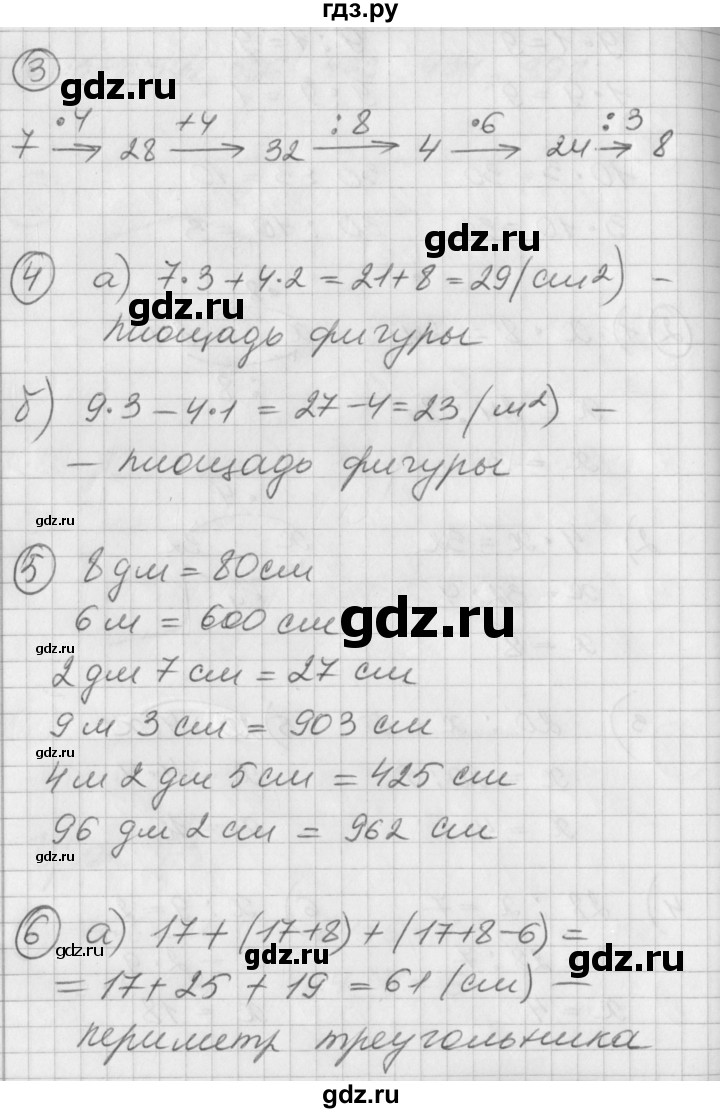 гдз.ру
3
gdz.ru
·4 +4 :8 ·6 :3
7 → 28 → 32 → 4 → 24 → 8
gdz.ru
4 а) 7·3+4·2=21+8=29(см²) –
gdz.ru
площадь фигуры
б) 9·3–4·1=27–4=23(м²) –
– площадь фигуры
gdz.ru
5 8 дм = 80 см
gdz.ru
6 м = 600 см
gdz.ru
2 дм 7 см = 27 см
9 м 3 см = 903 см
gdz.ru
4 м 2 дм 5 см = 425 см
96 дм 2 см = 962 см
gdz.ru
6 а) 17+(17+8)+(17+8–6)=
gdz.ru
gdz.ru
gdz.ru
=17+25+19=61(см) –
периметр треугольника
gdz.ru